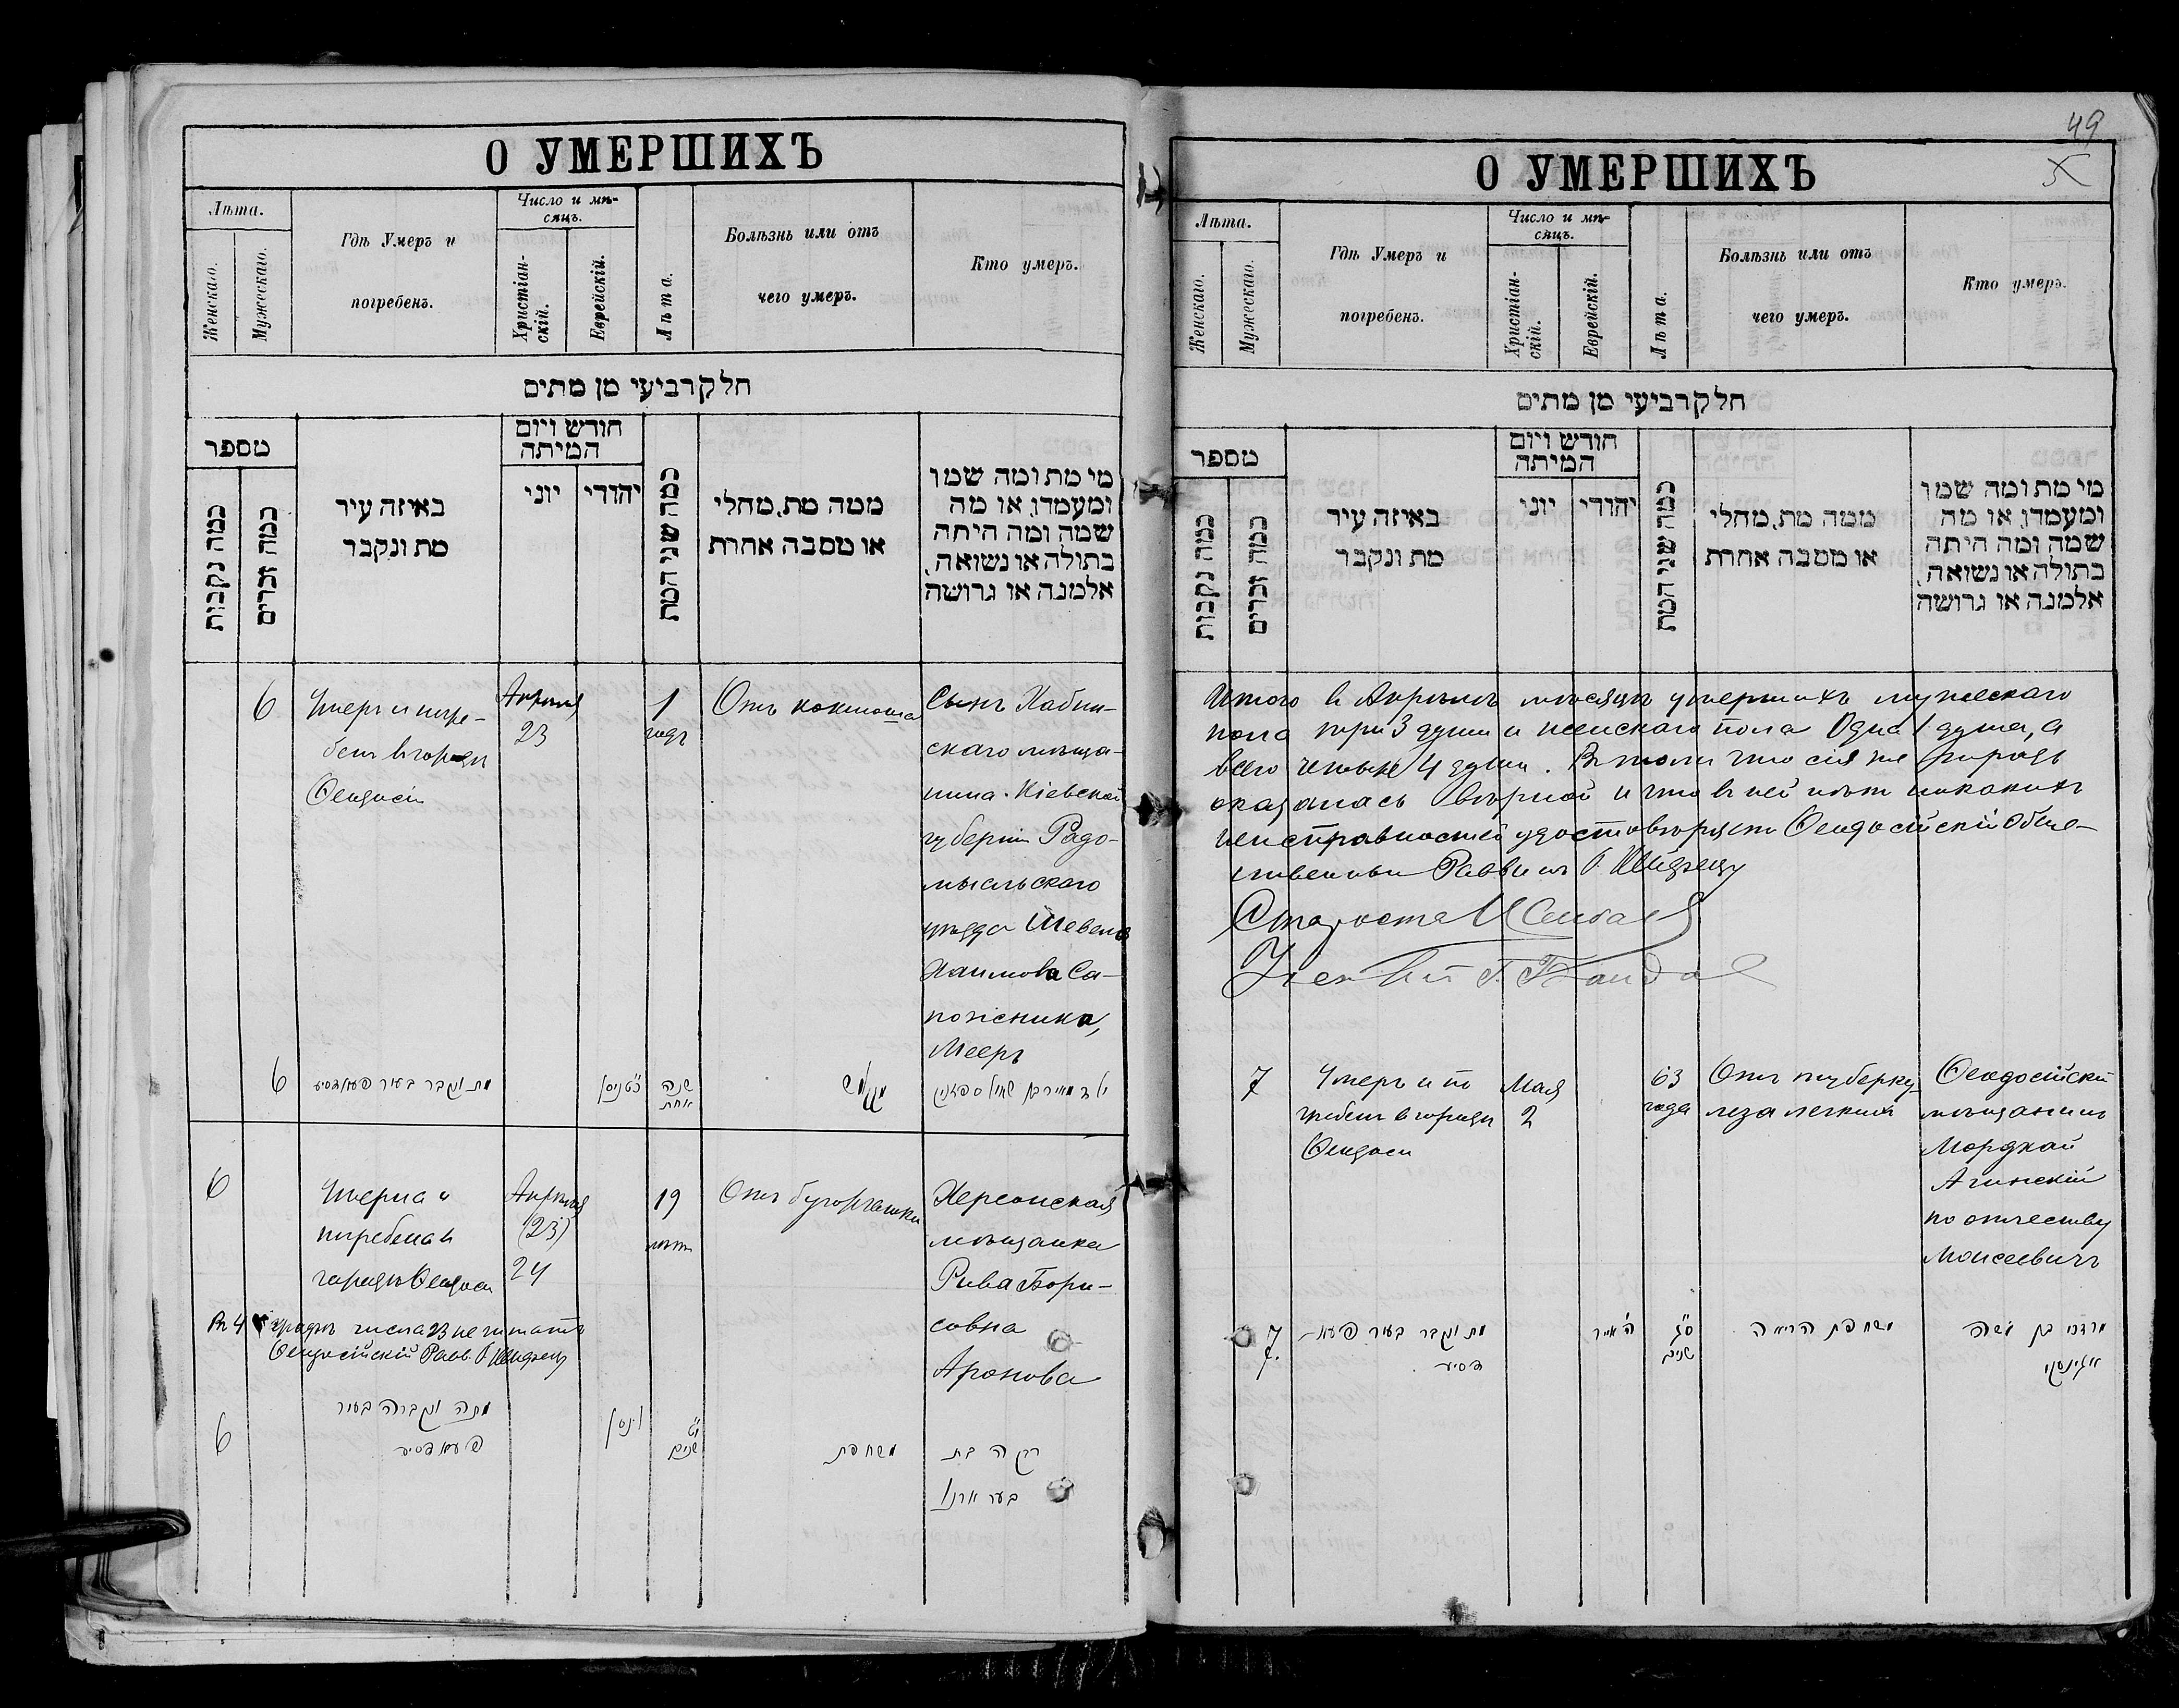 О УМЕРШИХЪ
Лѣта.
Женскаго.
Мужескаго.
Гдѣ Умеръ и
погребенъ.
Число и мѣ-
сяцъ.
Христіан-
скій.
Еврейскій.
Лѣта.
Болѣзнь или отъ
чего умеръ.
Кто умеръ.
חלק רביעי מן מתים
מספר
כמה נקבות
כמה זכרים
באיזה עיר
מת ונקבר
חודש ויום
המיתה
יוני
יהודי
כמה שני המת
ממה מת, מחלי
או מסבה אחרת
מי מת ומה שמו
ומעמדו, או מה
שמה ומה היתה
בתולה או נשואה,
אלמנה או גרושה
6
Умеръ и погре-
бенъ въ городѣ
Ѳеодосіи
Апрѣля
23
1
годъ
Отъ коклюша
Сынъ Хабин-
скаго мѣща-
нина Кіевской
губерніи Радо-
мысльскаго
уѣзда
Хаимова Са-
пожника,
Мееръ
6
מת ונקבר בעיר פעאדסיע
ניסן
שנה
אחת
6
Умерла и
погребена въ
городѣ Ѳеодосіи
Апрѣля
(23)
24
19
лѣтъ
Отъ бугорчатки
Херсонская
мѣщанка
Рива Бори-
совна
Аронова
Въ 4 графѣ числа 23 не читать
Ѳеодосійскій Равв.
6
מתה ונקברה בעיר
פעאדסיע
ניסן
י"ט
שנים
משחפת
רבקה בת
בער ארנוו
49
О УМЕРШИХЪ
Лѣта.
Женскаго.
Мужескаго.
Гдѣ Умеръ и
погребенъ.
Число и мѣ-
сяцъ.
Христіан-
скій.
Еврейскій.
Лѣта.
Болѣзнь или отъ
чего умеръ.
Кто умеръ.
חלק רביעי מן מתים
מספר
כמה נקבות
כמה זכרים
באיזה עיר
מת ונקבר
חודש ויום
המיתה
יוני
יהודי
כמה שני המת
ממה מת, מחלי
או מסבה אחרת
מי מת ומה שמו
ומעמדו, או מה
שמה ומה היתה
בתולה או נשואה,
אלמנה או גרושה
Итого въ Апрѣлѣ мѣсяцѣ умершихъ мужескаго
пола три 3 души и женскаго пола Одна 1 душа, а
всего четыре 4 души. Въ томъ что сія же тетрадь
оказалась вѣрной и что въ ней нѣтъ никакихъ
неисправностей удостовѣряетъ Ѳеодосійскій Обще-
ственный Раввинъ
Староста
7
Умеръ и по
гребенъ въ городѣ
Ѳеодосіи
Мая
2
63
года
Отъ туберку
леза легкихъ
Ѳеодосійскій
мѣщанинъ
Мордхай
Агинскій
по отчеству
Моисеевичъ
7
מת ונקבר בעיר פעא-
דסיע
ה' אייר
ס"ג
שנים
משחפת הריאה
מרדכי בן משה
אגינסקי